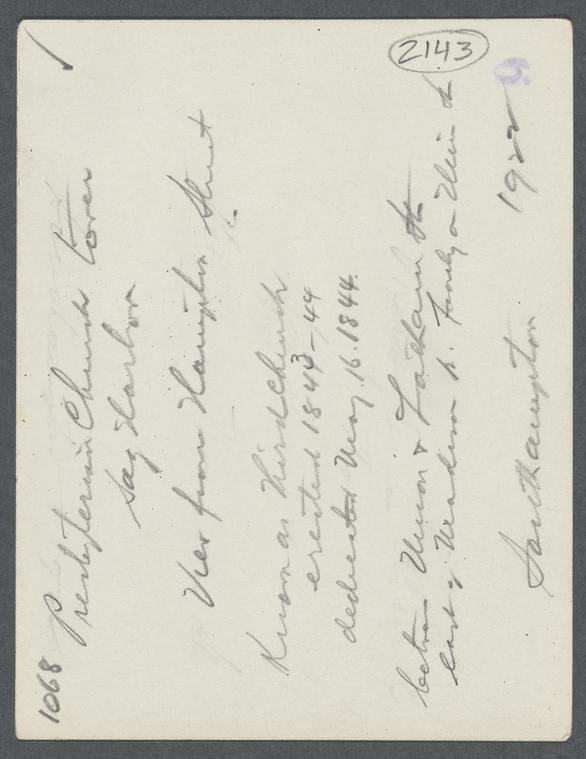 2143
1068
Presbyterian Church tower
Sag Harbor
View from Hampton Street
Known as Third Church
erected 1843-44
dedicated May 16. 1844.
between Union & Latham St
east of Madison St. on Main St
Southampton 1922